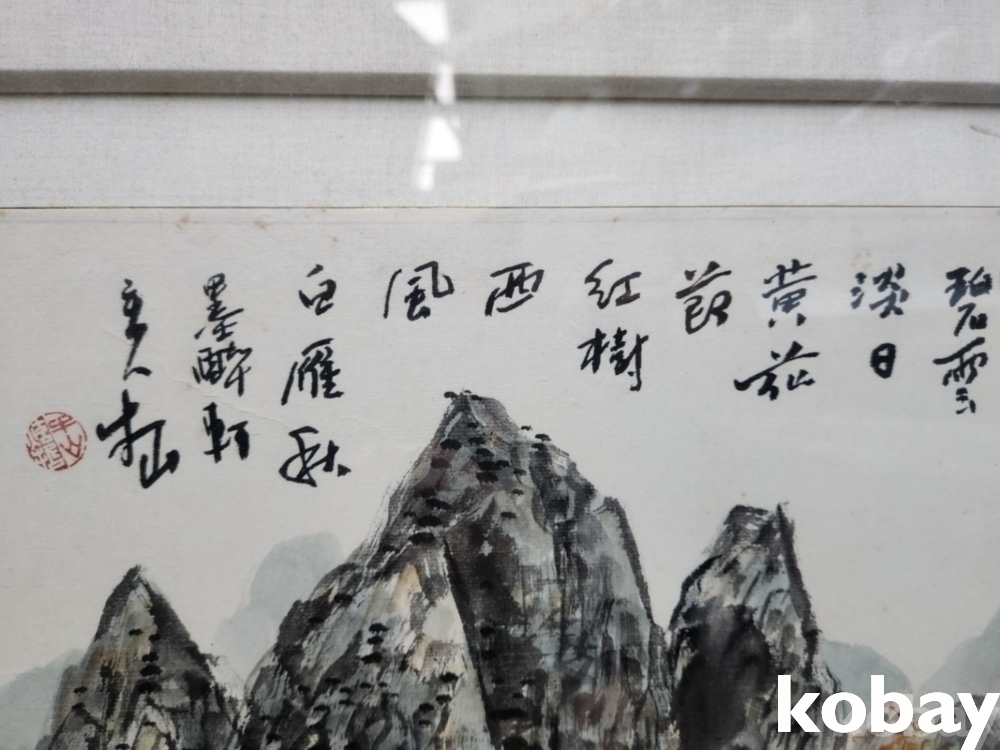 碧雲
淡日
黄花
節
紅樹
西
風
白雁秋
墨醉軒
主人
kobay